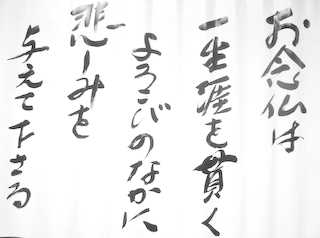 お念仏は
一生涯を貫く
よろこびのなかに
悲しみを
与えて下さる